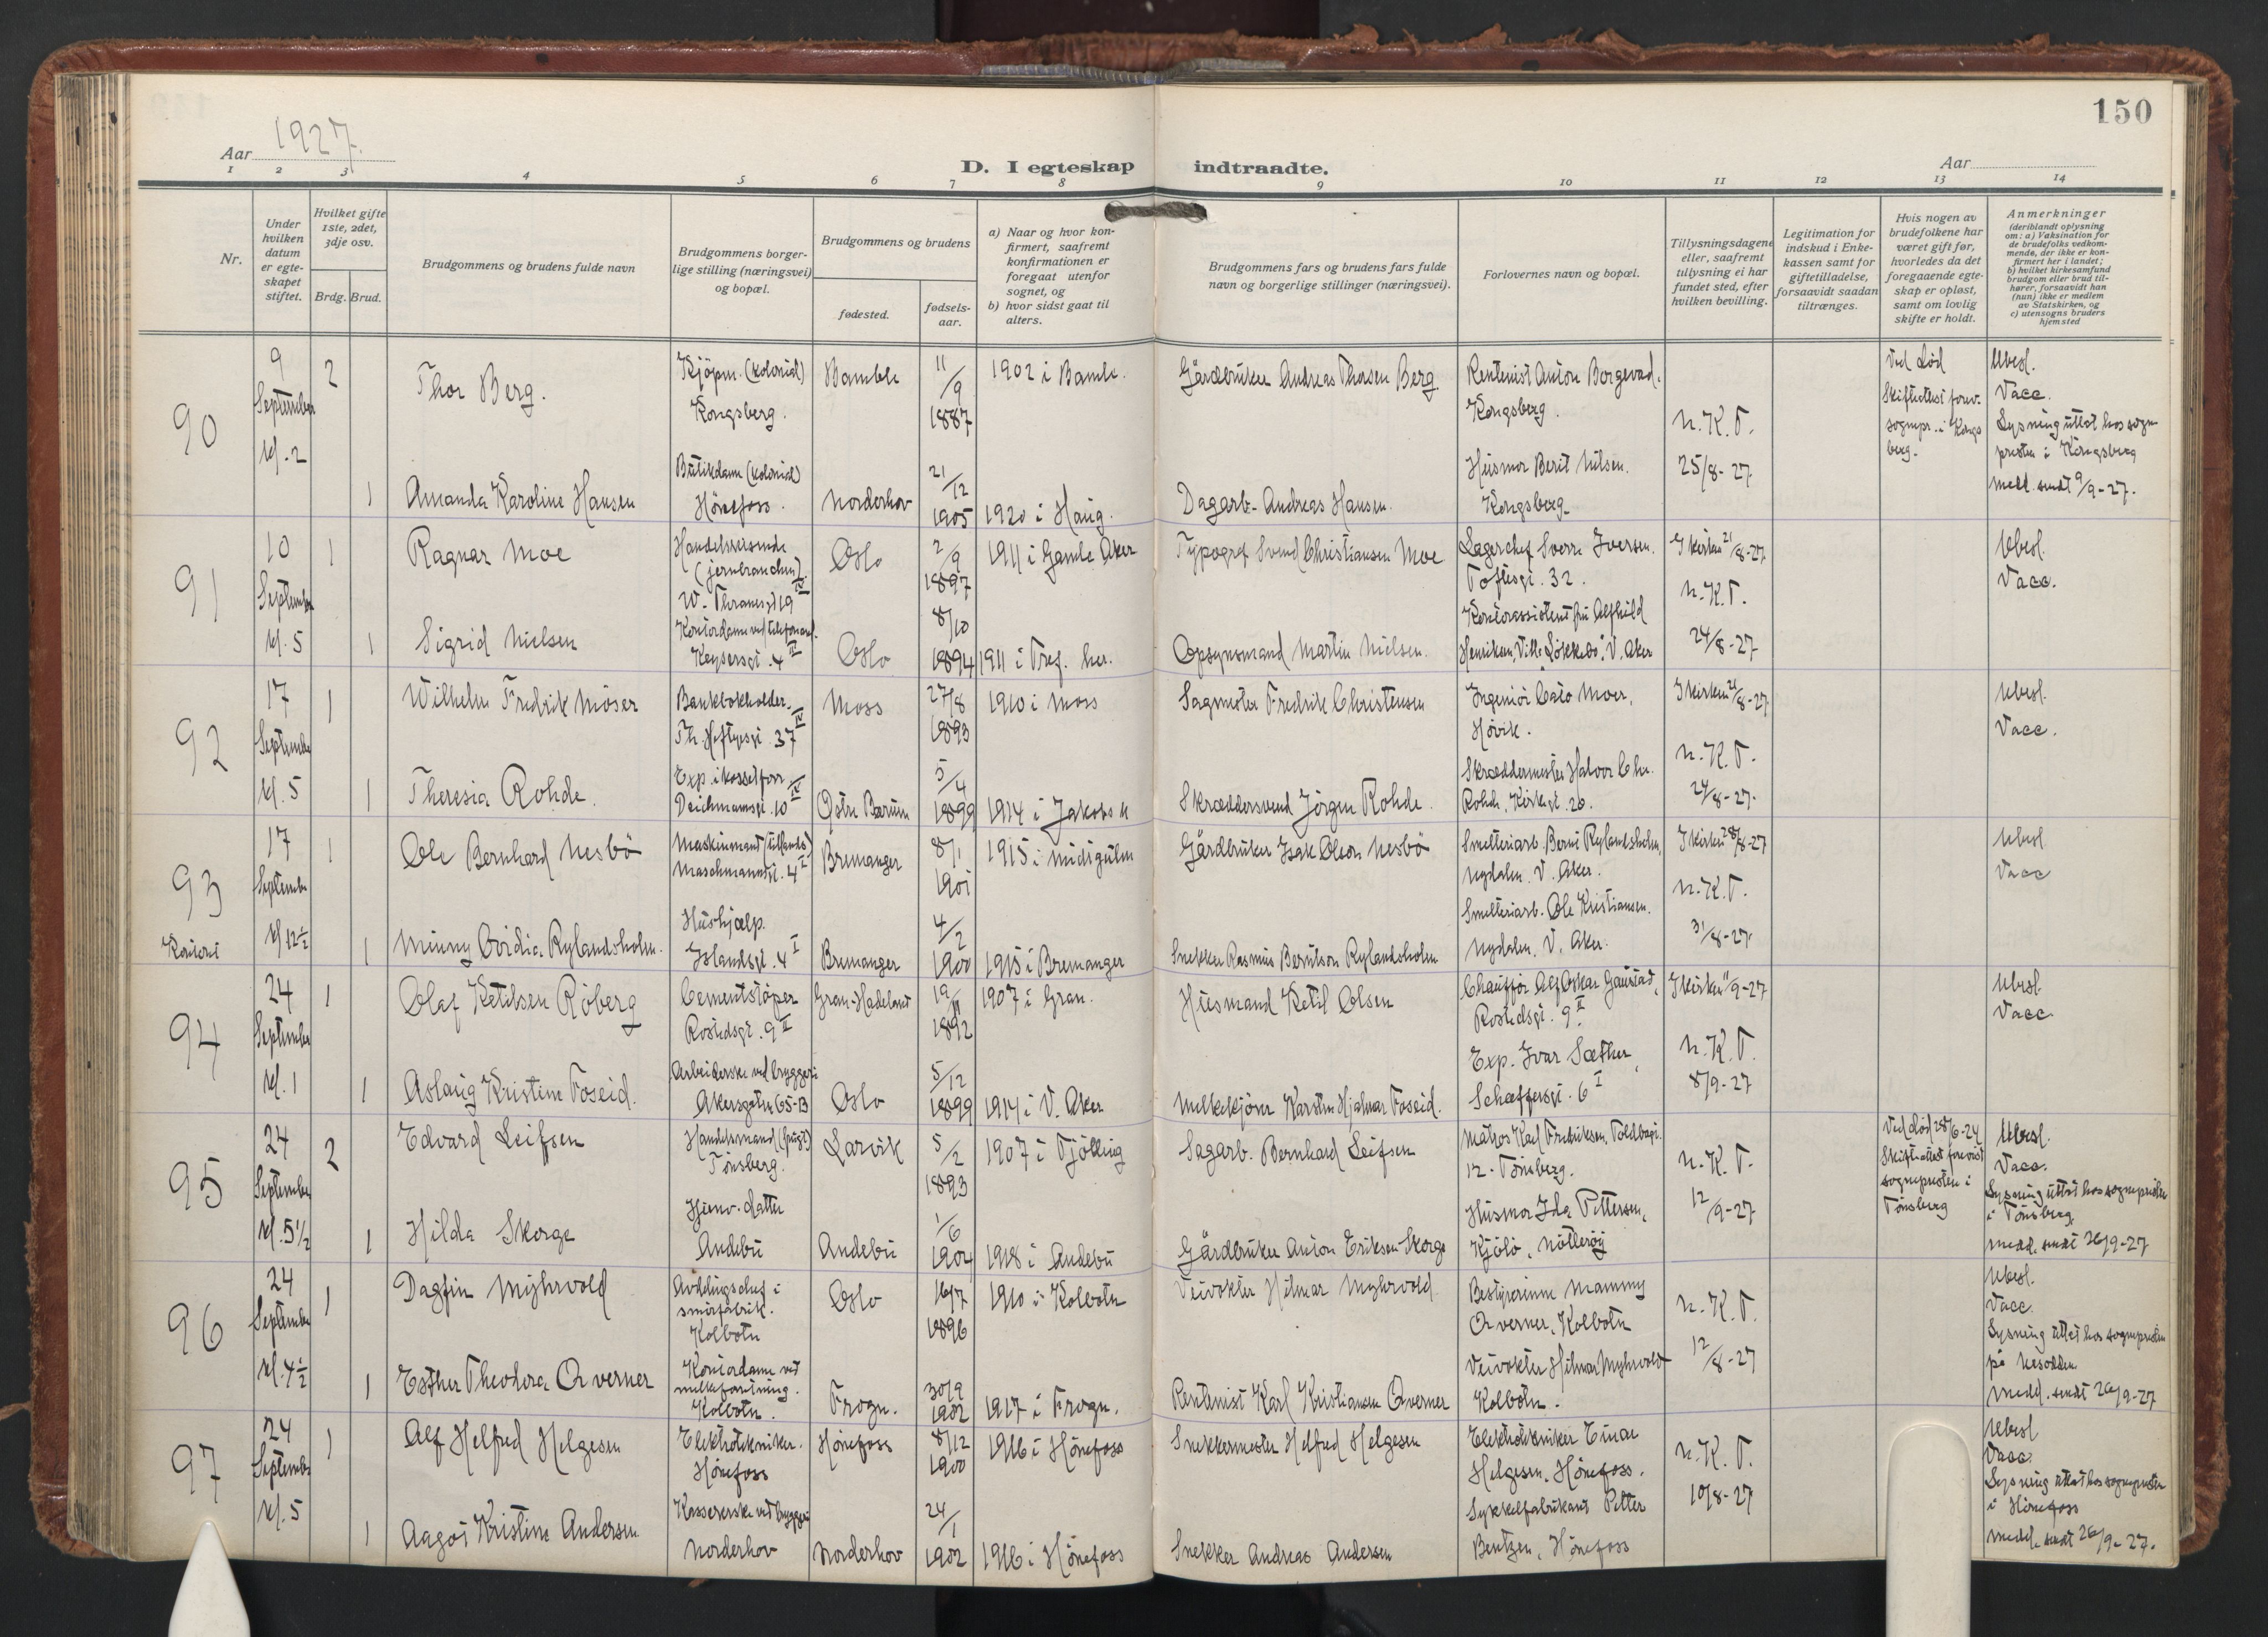 150
Aar 1927.
D. I egteskap indtraadte.
Aar
1 2 3 4 5 6 7 8 9 10 11 12 13 14
Nr.
Under hvilken datum er egteskapet stiftet.
Hvilket gifte 1ste, 2det, 3dje osv.
Brdg. Brud.
Brudgommens og brudens fulde navn
Brudgommens borgerlige stilling (næringsvei) og bopæl.
Brudgommens og brudens
fødested.
fødselsaar.
a) Naar og hvor konfirmert, saafremt konfirmationen er foregaat utenfor sognet, og
b) hvor sidst gaat til alters.
Brudgommens fars og brudens fars fulde navn og borgerlige stillinger (næringsvei).
Forlovernes navn og bopæl.
Tillysningsdagene eller, saafremt tillysning ei har fundet sted, efter hvilken bevilling.
Legitimation for indskud i Enkekassen samt for giftetilladelse, forsaavidt saadan tiltrænges.
Hvis nogen av brudefolkene har været gift før, hvorledes da det foregaaende egteskap er opløst, samt om lovlig skifte er holdt.
Anmerkninger (deriblandt oplysning om: a) Vaksination for de brudefolks vedkommende, der ikke er konfirmert her i landet; b) hvilket kirkesamfund brudgom eller brud tilhører, forsaavidt han (hun) ikke er medlem av Statskirken, og c) utensogns bruders hjemsted
90
9 September kl. 2
2 Thor Berg.
Kjöpm. (kolonial) Kongsberg.
Bamble
11/9 1887
1902 i Bamle.
Gårdbruker Andreas Thorsen Berg.
Rentenist Anton Borgevad. Kongsberg.
n.K.T.
25/8-27
Ved död
Skifteattest forev. sognepr. i Kongsberg.
Ubesl.
Vacc.
Lysning uttat hos sognepresten i Kongsberg
medd. sendt 9/9-27.
1 Amanda Karoline Hansen
Butikdame (kolonial) Hönefoss.
Norderhov
21/12 1905
1920 i Haug.
Dagarb. Andreas Hansen.
Husmor Berit Nilsen. Kongsberg.
91
10 September kl. 5
1 Ragnar Moe
Handelsreisende (jernbranchen) W. Thranesgt 19 IV
Oslo
2/9 1897
1911 i Gamle Aker
Typograf Svend Christiansen Moe
Lagerchef Sverre Iversen. Toftesgt. 32.
I kirken 21/8-27
n.K.T.
24/8-27
Ubesl.
Vacc.
1 Sigrid Nielsen
Kontordame ved telefonanl. Keysersgt. 4 II
Oslo
8/10 1894
1911 i Tref. her.
Opsynsmand Martin Nielsen.
Kontorassistent fru Alfhild Henriksen, Villa Lökkebo, V. Aker
92
17 September kl. 5
1 Wilhelm Fredrik Möser
Bankbokholder. Th. Heftyesgt. 37 IV
Moss
27/8 1893
1910 i Moss
Sagmester Fredrik Christensen
Ingeniör Cato Moer, Hövik.
I kirken 21/8-27
n.K.T.
24/8-27.
Ubesl.
Vacc.
1 Theresia Rohde.
Exp. i kasselforr. Deichmansgt. 10 IV
Östre Bærum
5/4 1899
1914 i Jakobs k
Skræddersvend Jörgen Rohde.
Skræddermester Halvor Chr. Rohde, Kirkegt. 20.
93
Kontoret
17 September kl 12½
1 Ole Bernhard Nesbö
Maskinmand (utlands) Maschmannsgt. 4 I
Bremanger
8/1 1901
1915 i Midtgulen
Gårdbruker Isak Olson Nesbö
Smelteriarb. Bernt Rylandsholm, Nydalen. V. Aker.
I kirken 28/8-27
n.K.T.
31/8-27.
Ubesl.
Vacc
1 Minny Ovidia Rylandsholm.
Hushjælp. Islandsgt. 4 I
Bremanger
4/2 1900
1915 i Bremanger
Snekker Rasmus Berntson Rylandsholm
Smelteriarb. Ole Kristiansen. Nydalen, V. Aker.
94
24 September kl. 1
1 Olaf Ketilsen Röberg
Cementstöper Rostedsgt. 9 II
Gran-Hadeland
19/11 1892
1907 i Gran.
Husmand Ketil Olsen
Chaufför Alf Oskar Gaustad, Rostedsgt. 9 II.
I kirken 11/9-27
n.K.T.
8/9-27
Ubesl.
Vacc.
1 Aslaug Kristine Foseid.
Arbeiderske ved bryggeri Akersgaten 65-B
Oslo
5/12 1899
1914 i V. Aker
Melkekjörer Karsten Hjalmar Foseid.
Exp. Ivar Sæther, Schæffersgt. 6 I
95
24 September kl. 5½
2 Edvard Leifsen
Handelsmand (frugt) Tönsberg.
Larvik
5/2 1893
1907 i Tjölling
Sagarb. Bernhard Leifsen
Matros Karl Fredriksen, Toldbugt. 12. Tönsberg.
n.K.T.
12/9-27
Ved död 28/6-24
Skifteattest forevist sognepresten i Tönsberg
Ubesl.
Vacc.
Lysning uttat hos sognepresten i Tönsberg
medd. sendt 26/9-27
1 Hilda Skorge
Hjemv. datter Andebu
Andebu
1/6 1904
1918 i Andebu
Gårdbruker Anton Eriksen Skorge
Husmor Ida Pettersen, Kjölö, Nötteröy
96
24 September kl. 4½
1 Dagfin Myhrvold
Avdelingschef i smörfabrik. Kolbotn
Oslo
16/7 1896
1910 i Kolbotn
Veivokter Hilmar Myhrvold
Bestyrerinne Mammy Qverner, Kolbotn
n.K.T.
12/8-27
Ubesl.
Vacc.
Lysning uttat hos sognepresten på Nesodden
medd. sendt 26/9-27
1 Esther Theodora Qverner
Kontordame ved melkeforretning. Kolbotn.
Frogn.
30/9 1902
1917 i Frogn.
Rentenist Karl Kristiansen Qverner
Veivokter Hilmar Myhrvold Kolbotn.
97
24 September kl. 5
1 Alf Helfred Helgesen
Elektrotekniker. Hönefoss
Hönefoss
8/12 1900
1916 i Hönefoss
Snekkermester Helfred Helgesen
Elektrotekniker Einar Helgesen, Hönefoss.
n.K.T.
10/8-27
Ubesl
Vacc.
Lysning uttat hos sognepresten i Hönefoss
medd. sendt 26/9-27.
1 Aagot Kristine Andersen
Kassererske ved bryggeri Norderhov
Norderhov
24/1 1902
1916 i Hönefoss
Snekker Andreas Andersen
Sykkelfabrikant Petter Bentzen, Hönefoss